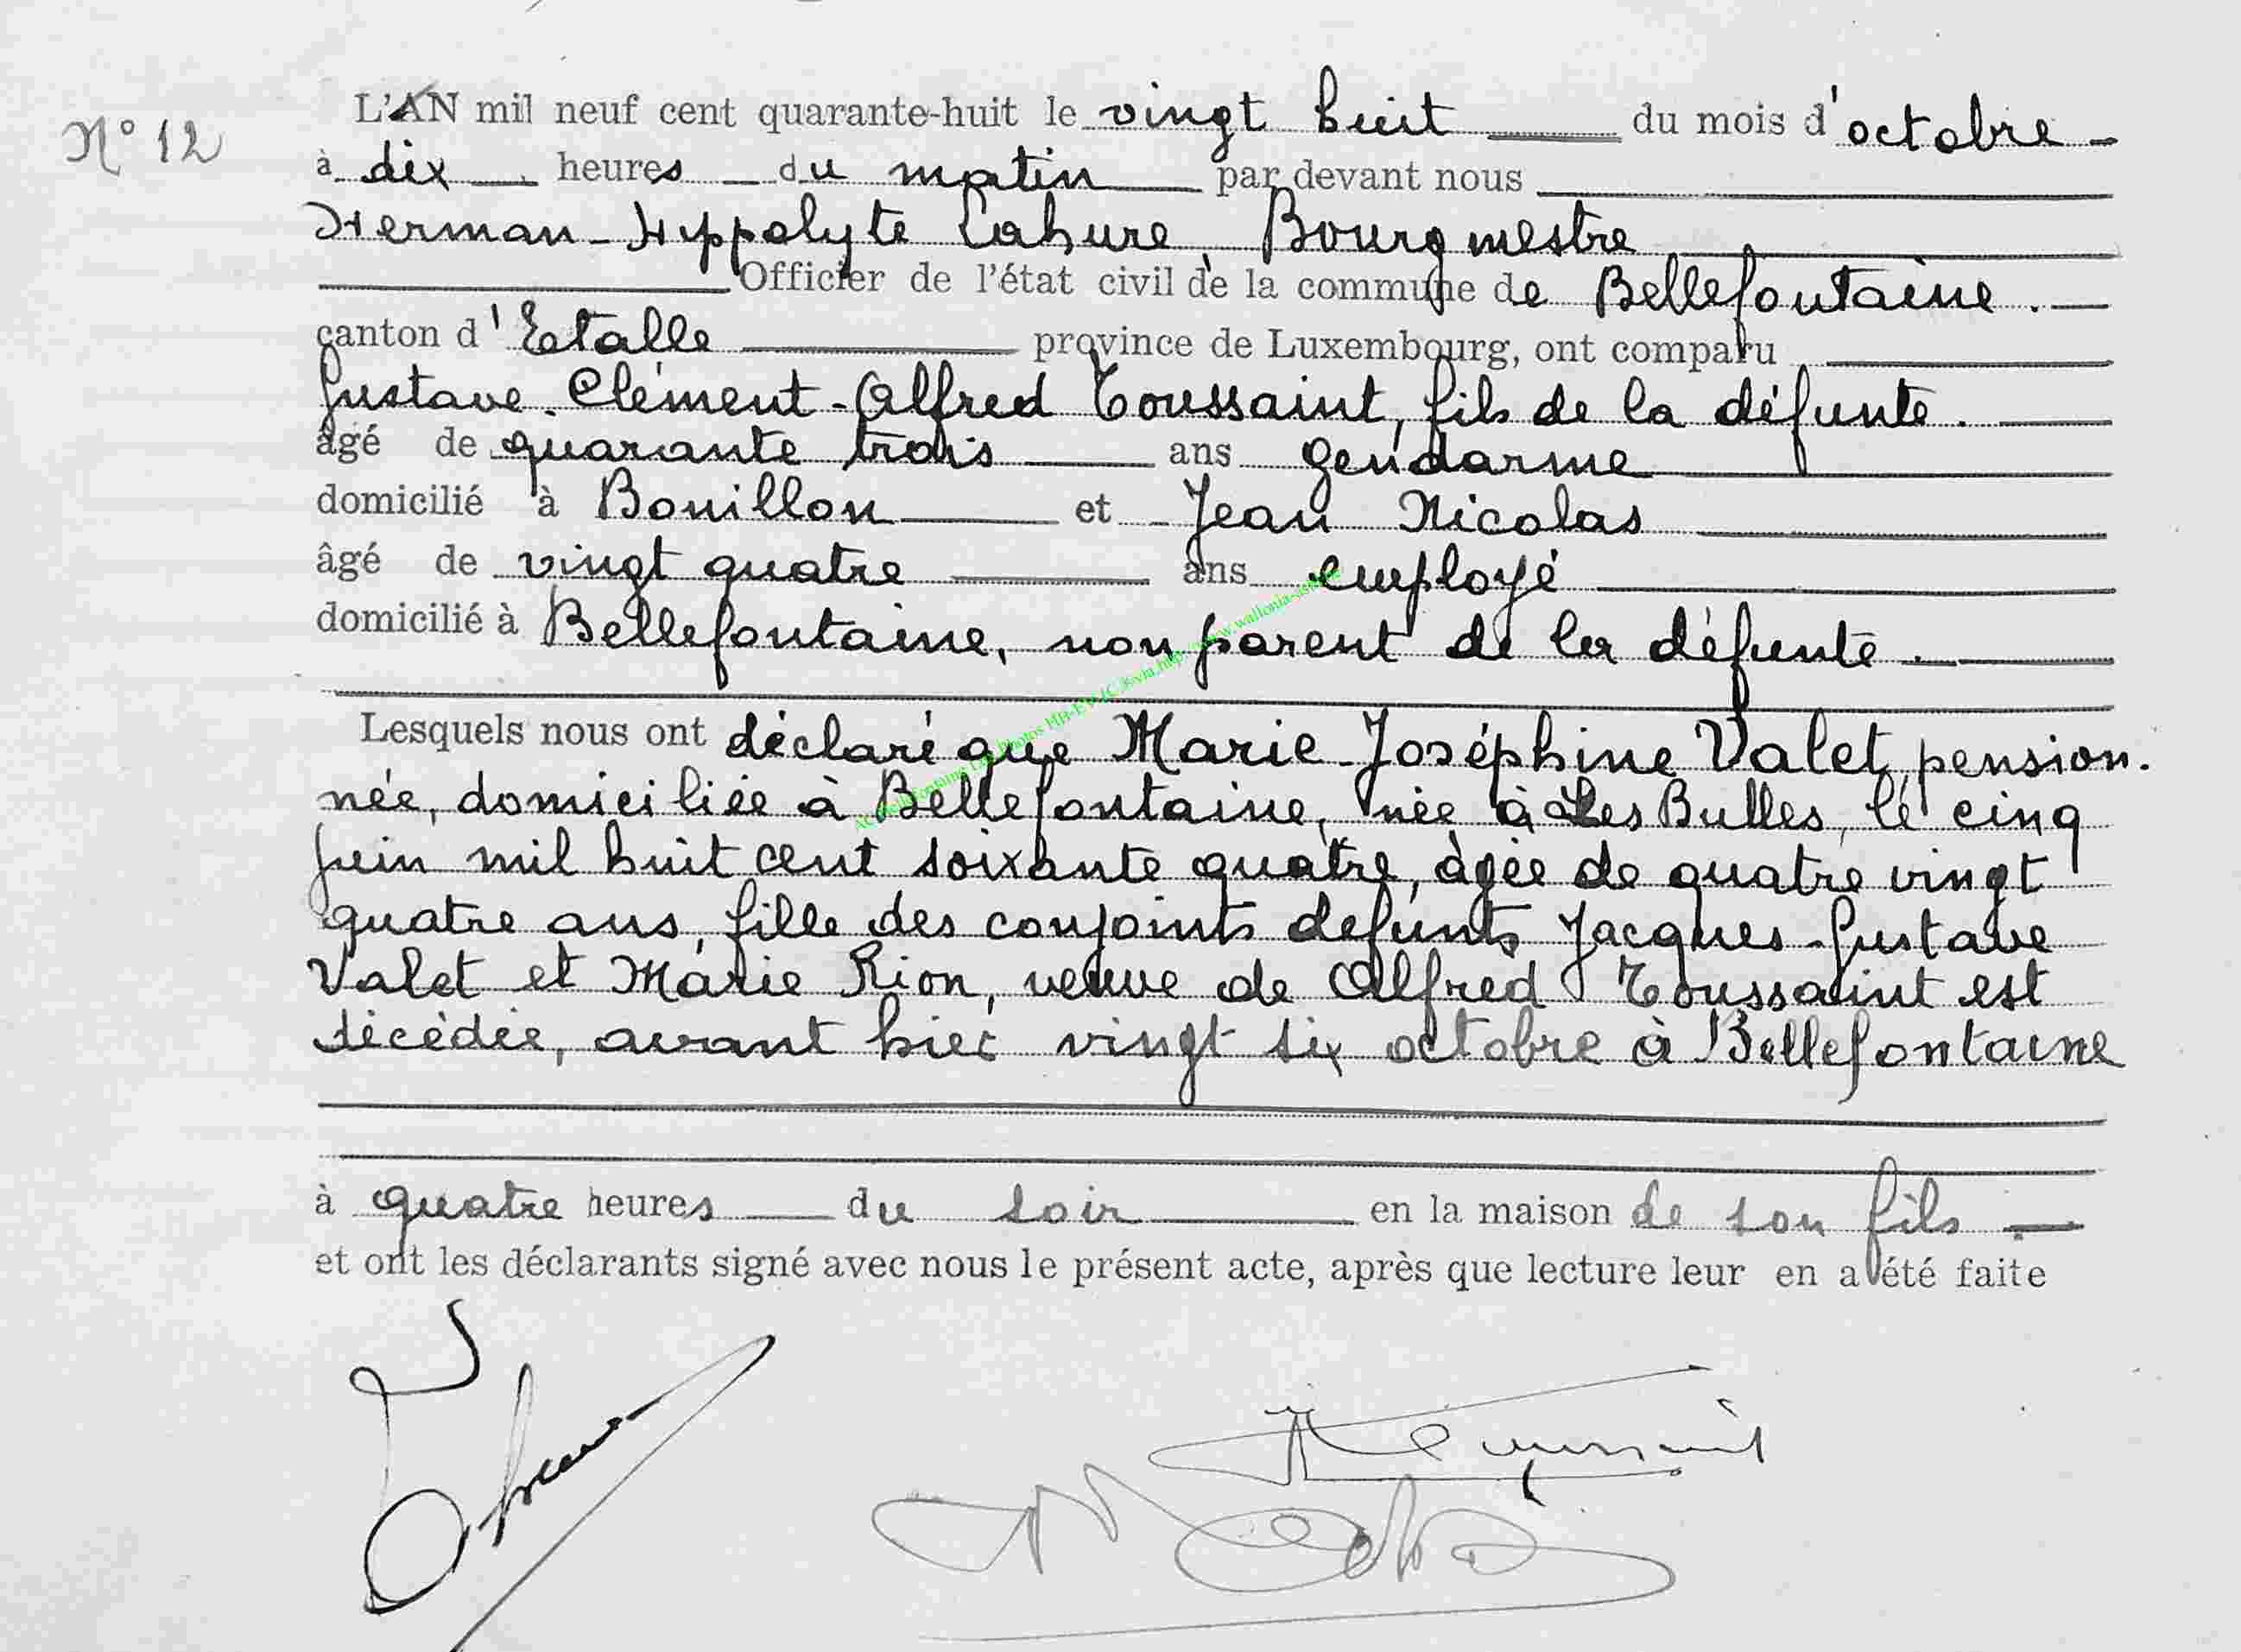 N° 12
L'AN mil neuf cent quarante-huit le vingt huit du mois d'octobre
à dix heures du matin par devant nous
Herman-Hippolyte Lahure, Bourgmestre
Officier de l'état civil de la commune de Bellefontaine.
canton d'Etalle province de Luxembourg, ont comparu
Gustave-Clément-Alfred Toussaint, fils de la défunte.
âgé de quarante trois ans gendarme
domicilié à Bouillon et Jean Nicolas
âgé de vingt quatre ans employé
domicilié à Bellefontaine, non parent de la défunte.
Lesquels nous ont déclaré que Marie-Joséphine Valet, pension-
née, domiciliée à Bellefontaine, née à Les Bulles, le cinq
juin mil huit cent soixante quatre, âgée de quatre vingt
quatre ans, fille des conjoints défunts Jacques-Gustave
Valet et Marie Rion, veuve de Alfred Toussaint est
décédée, avant hier vingt six octobre à Bellefontaine
à quatre heures du soir en la maison de son fils.
et ont les déclarants signé avec nous le présent acte, après que lecture leur en a été faite
Toussaint